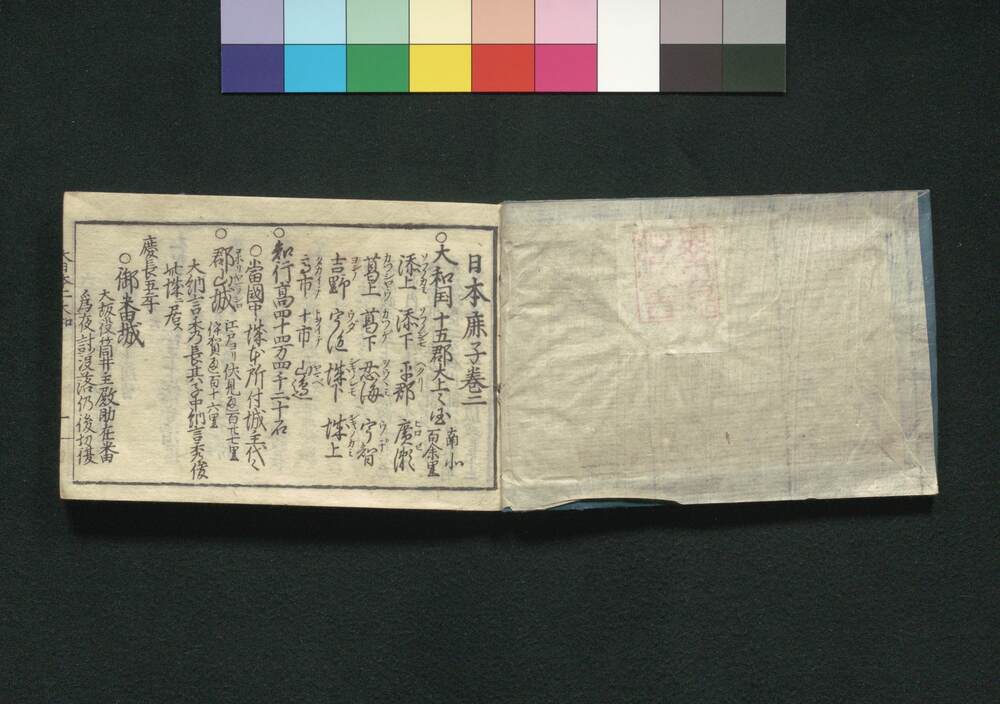 日本鹿子巻二
○大和国 十五郡 大上々国 南北百余里
添上 添下 平郡 廣瀬
葛上 葛下 忍海 宇智
吉野 宇陀 城下 城上
高市 十市 山邊
○知行高四十四万四千三十石
○當國中城本所付城主代々
○郡山城 江戸ヨリ伏見通百廿七里 伊賀通百十六里
大納言秀長其子中納言秀俊
此城ニ居
慶長五年
○御番城
大坂役筒井主殿助在番
為夜討没落仍後切復